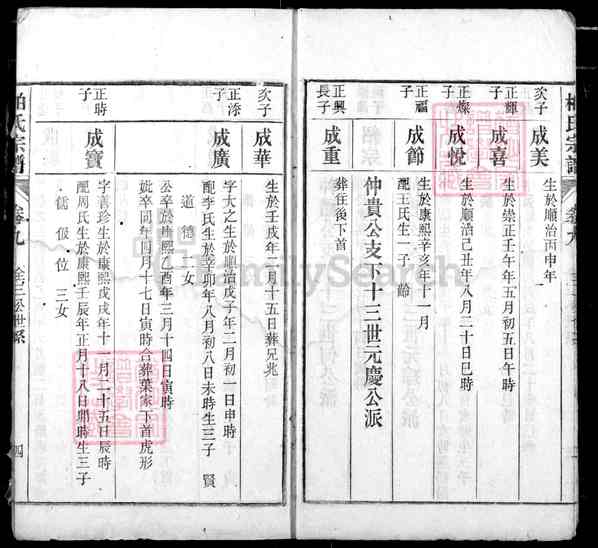 次子
成美
生於順治丙申年
正輝子
成喜
生於崇正壬午年五月初五日午時
正燦子
成悅
生於順治己丑年八月二十日巳時
正福子
成節
生於康熙辛亥年十一月
配王氏生一子 齡
正興長子
成重
葬往後下首
仲貴公支下十三世元慶公派
次子
成華
生於壬戌年二月十五日葬兄兆
正滁子
成廣
字大之生於順治戊子年二月初一日申時
配李氏生於辛卯年八月初八日未時生三子 賢
道 德 二女
公卒於康熙乙酉年三月十四日寅時
妣卒同年四月十七日寅時合葬葉家下首虎形
正時子
成寶
字善珍生於康熙戊戌年十一月二十五日辰時
配周氏生於康熙壬辰年正月十八日卯時生三子
儒 伋 位 三女
柏氏宗譜
卷九
四
FamilySearch